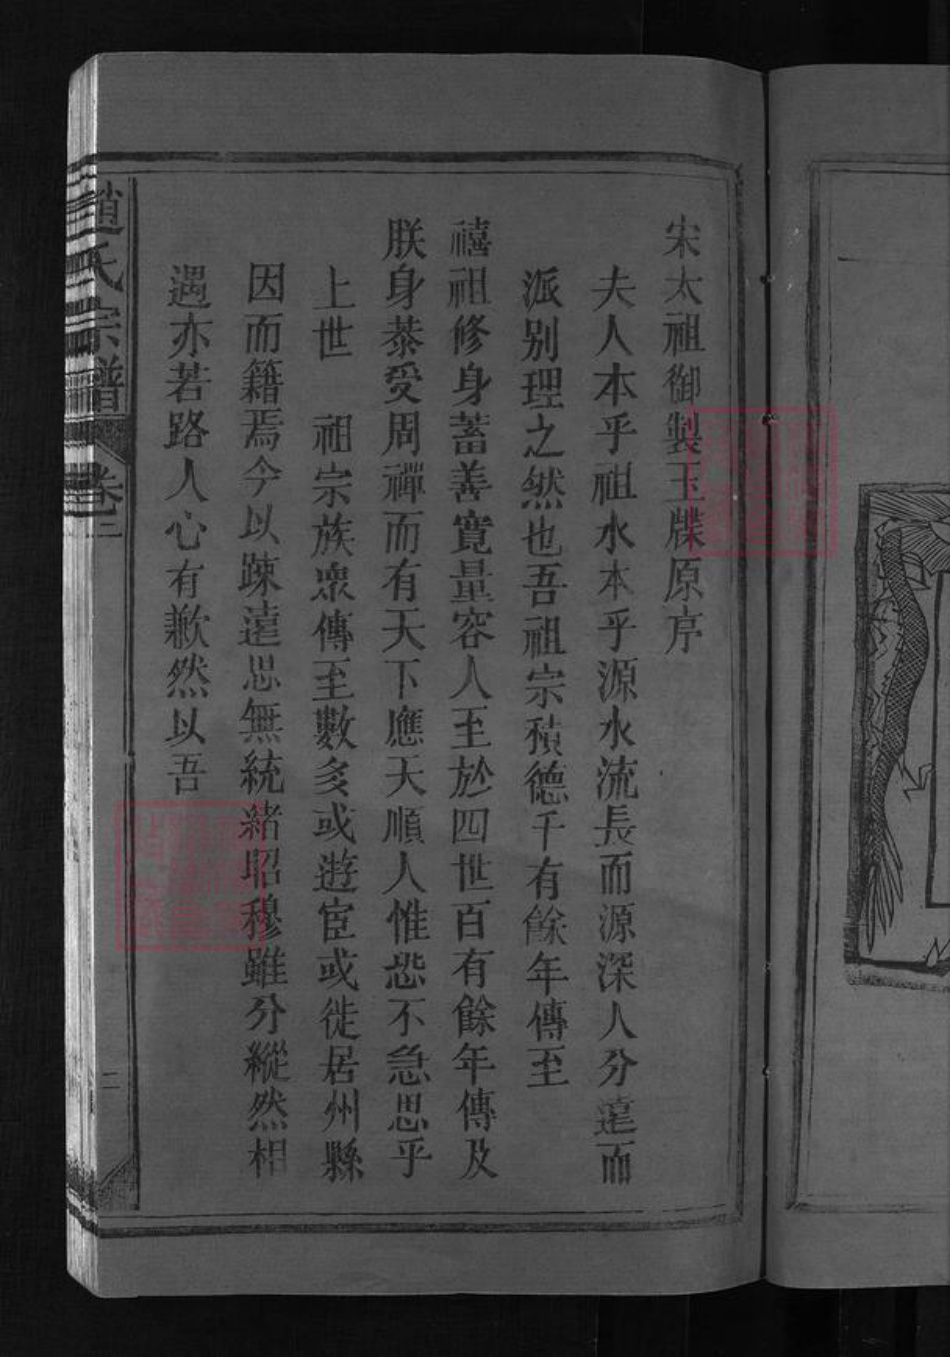 宋太祖御製玉牒原序
夫人本乎祖水本乎源水流長而源深人分遠而
派别理之然也吾祖宗積德千有餘年傳至
禧祖修身蓄善寬量容人至於四世百有餘年傳及
朕身恭受周禪而有天下應天順人惟恐不急思乎
上世　祖宗族衆傳至數多或遊宦或徙居州縣
因而籍焉今以踈遠思無統緒昭穆雖分縱然相
遇亦若路人心有歉然以吾
趙氏宗譜 卷二
二